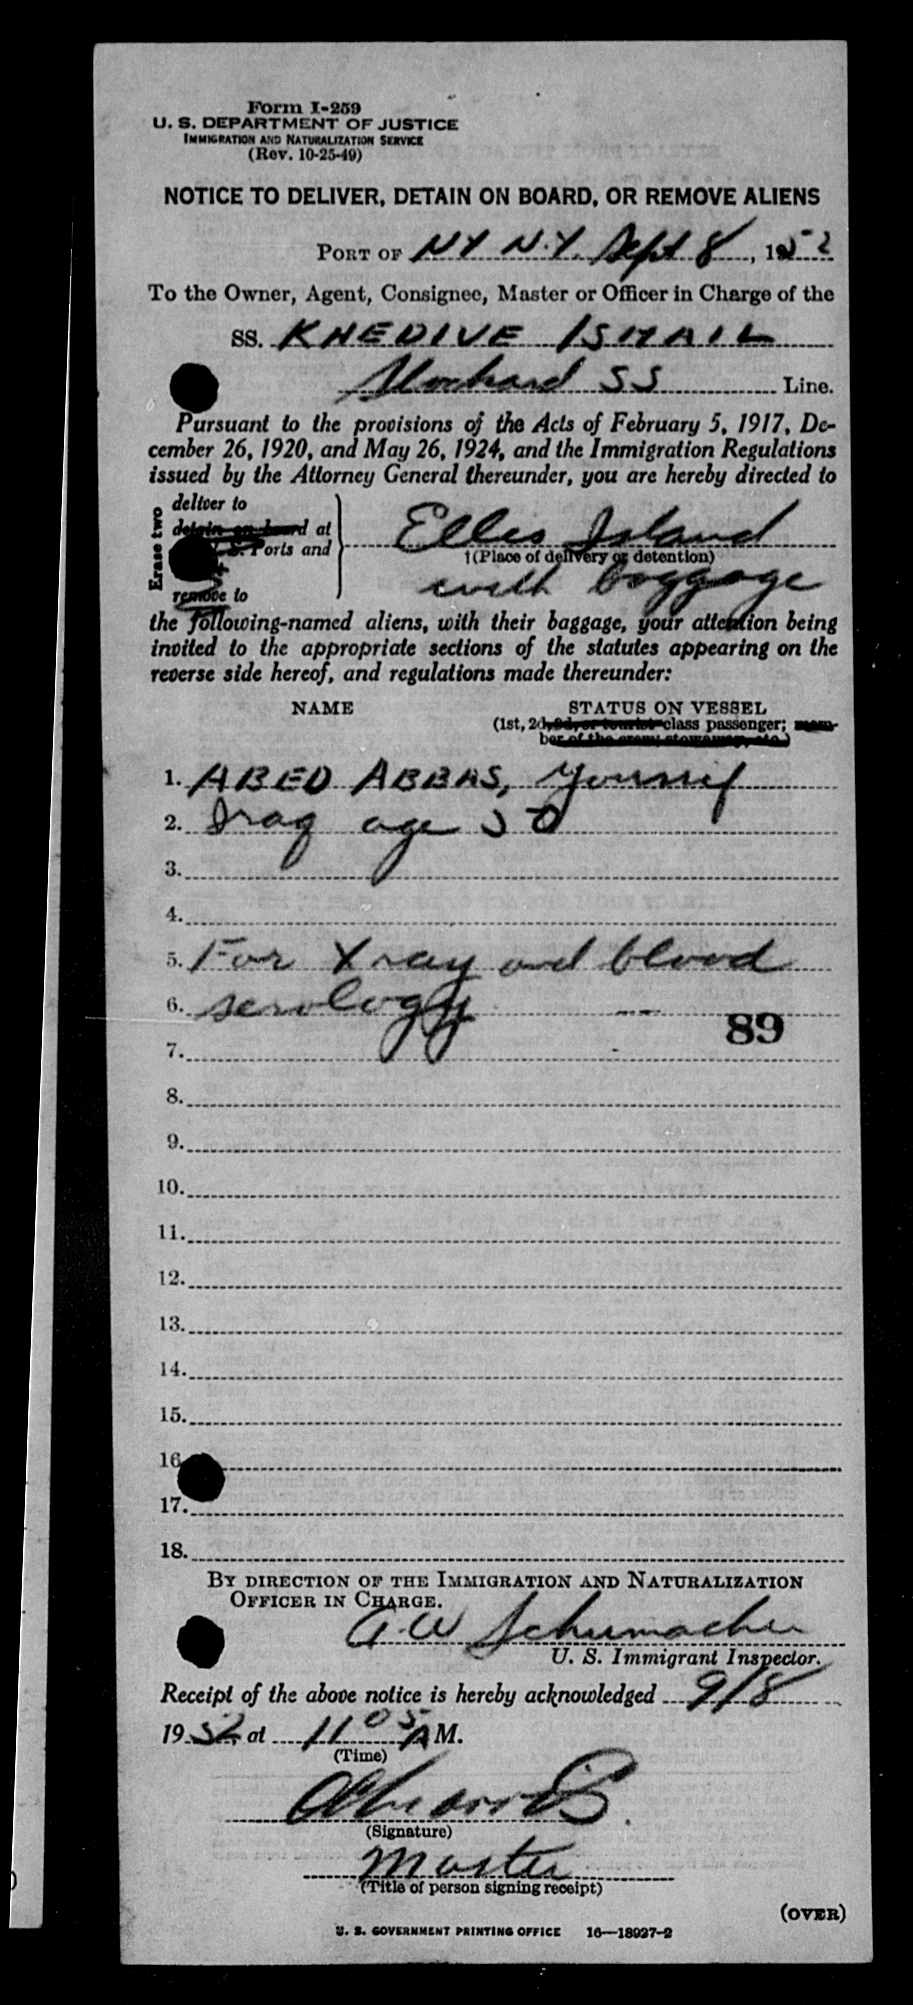 Form I-259
U. S. DEPARTMENT OF JUSTICE
IMMIGRATION AND NATURALIZATION SERVICE
(Rev. 10-25-49)
NOTICE TO DELIVER, DETAIN ON BOARD, OR REMOVE ALIENS
PORT OF NY N.Y. Sept 8, 1952
To the Owner, Agent, Consignee, Master or Officer in Charge of the
SS. KHEDIVE ISMAIL
SS Line.
Pursuant to the provisions of the Acts of February 5, 1917, De-
cember 26, 1920, and May 26, 1924, and the Immigration Regulations
issued by the Attorney General thereunder, you are hereby directed to
Erase two
deliver to
detain on board at
Ports and
remove to
Ellis Island
†(Place of delivery or detention)
with baggage
the following-named aliens, with their baggage, your attention being
invited to the appropriate sections of the statutes appearing on the
reverse side hereof, and regulations made thereunder:
NAME STATUS ON VESSEL
(1st, 2d, 3d, or tourist class passenger; mem-
ber of the crew, stowaway, etc.)
1. ABED ABBAS, Youssif
2. Iraq age 50
3.
4.
5. For Xray and blood
6. serology
89
7.
8.
9.
10.
11.
12.
13.
14.
15.
16
17.
18.
BY DIRECTION OF THE IMMIGRATION AND NATURALIZATION
OFFICER IN CHARGE.
A.W Schumacher
U. S. Immigrant Inspector.
Receipt of the above notice is hereby acknowledged 9/8
1952 at 11 05 A M.
(Time)
(Signature)
Master
(Title of person signing receipt)
(OVER)
U. S. GOVERNMENT PRINTING OFFICE 16—18927-2